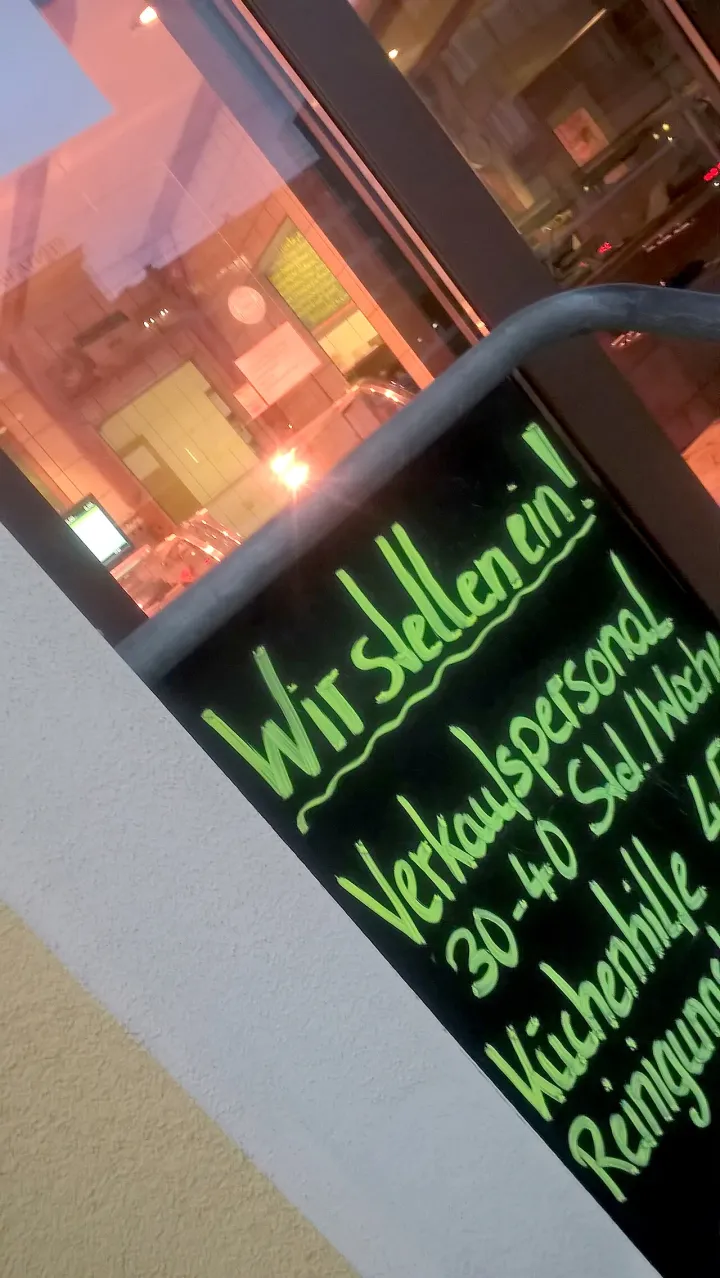 Wir stellen ein!
Verkaufspersonal
30-40 Std./Woche
Küchenhilfe